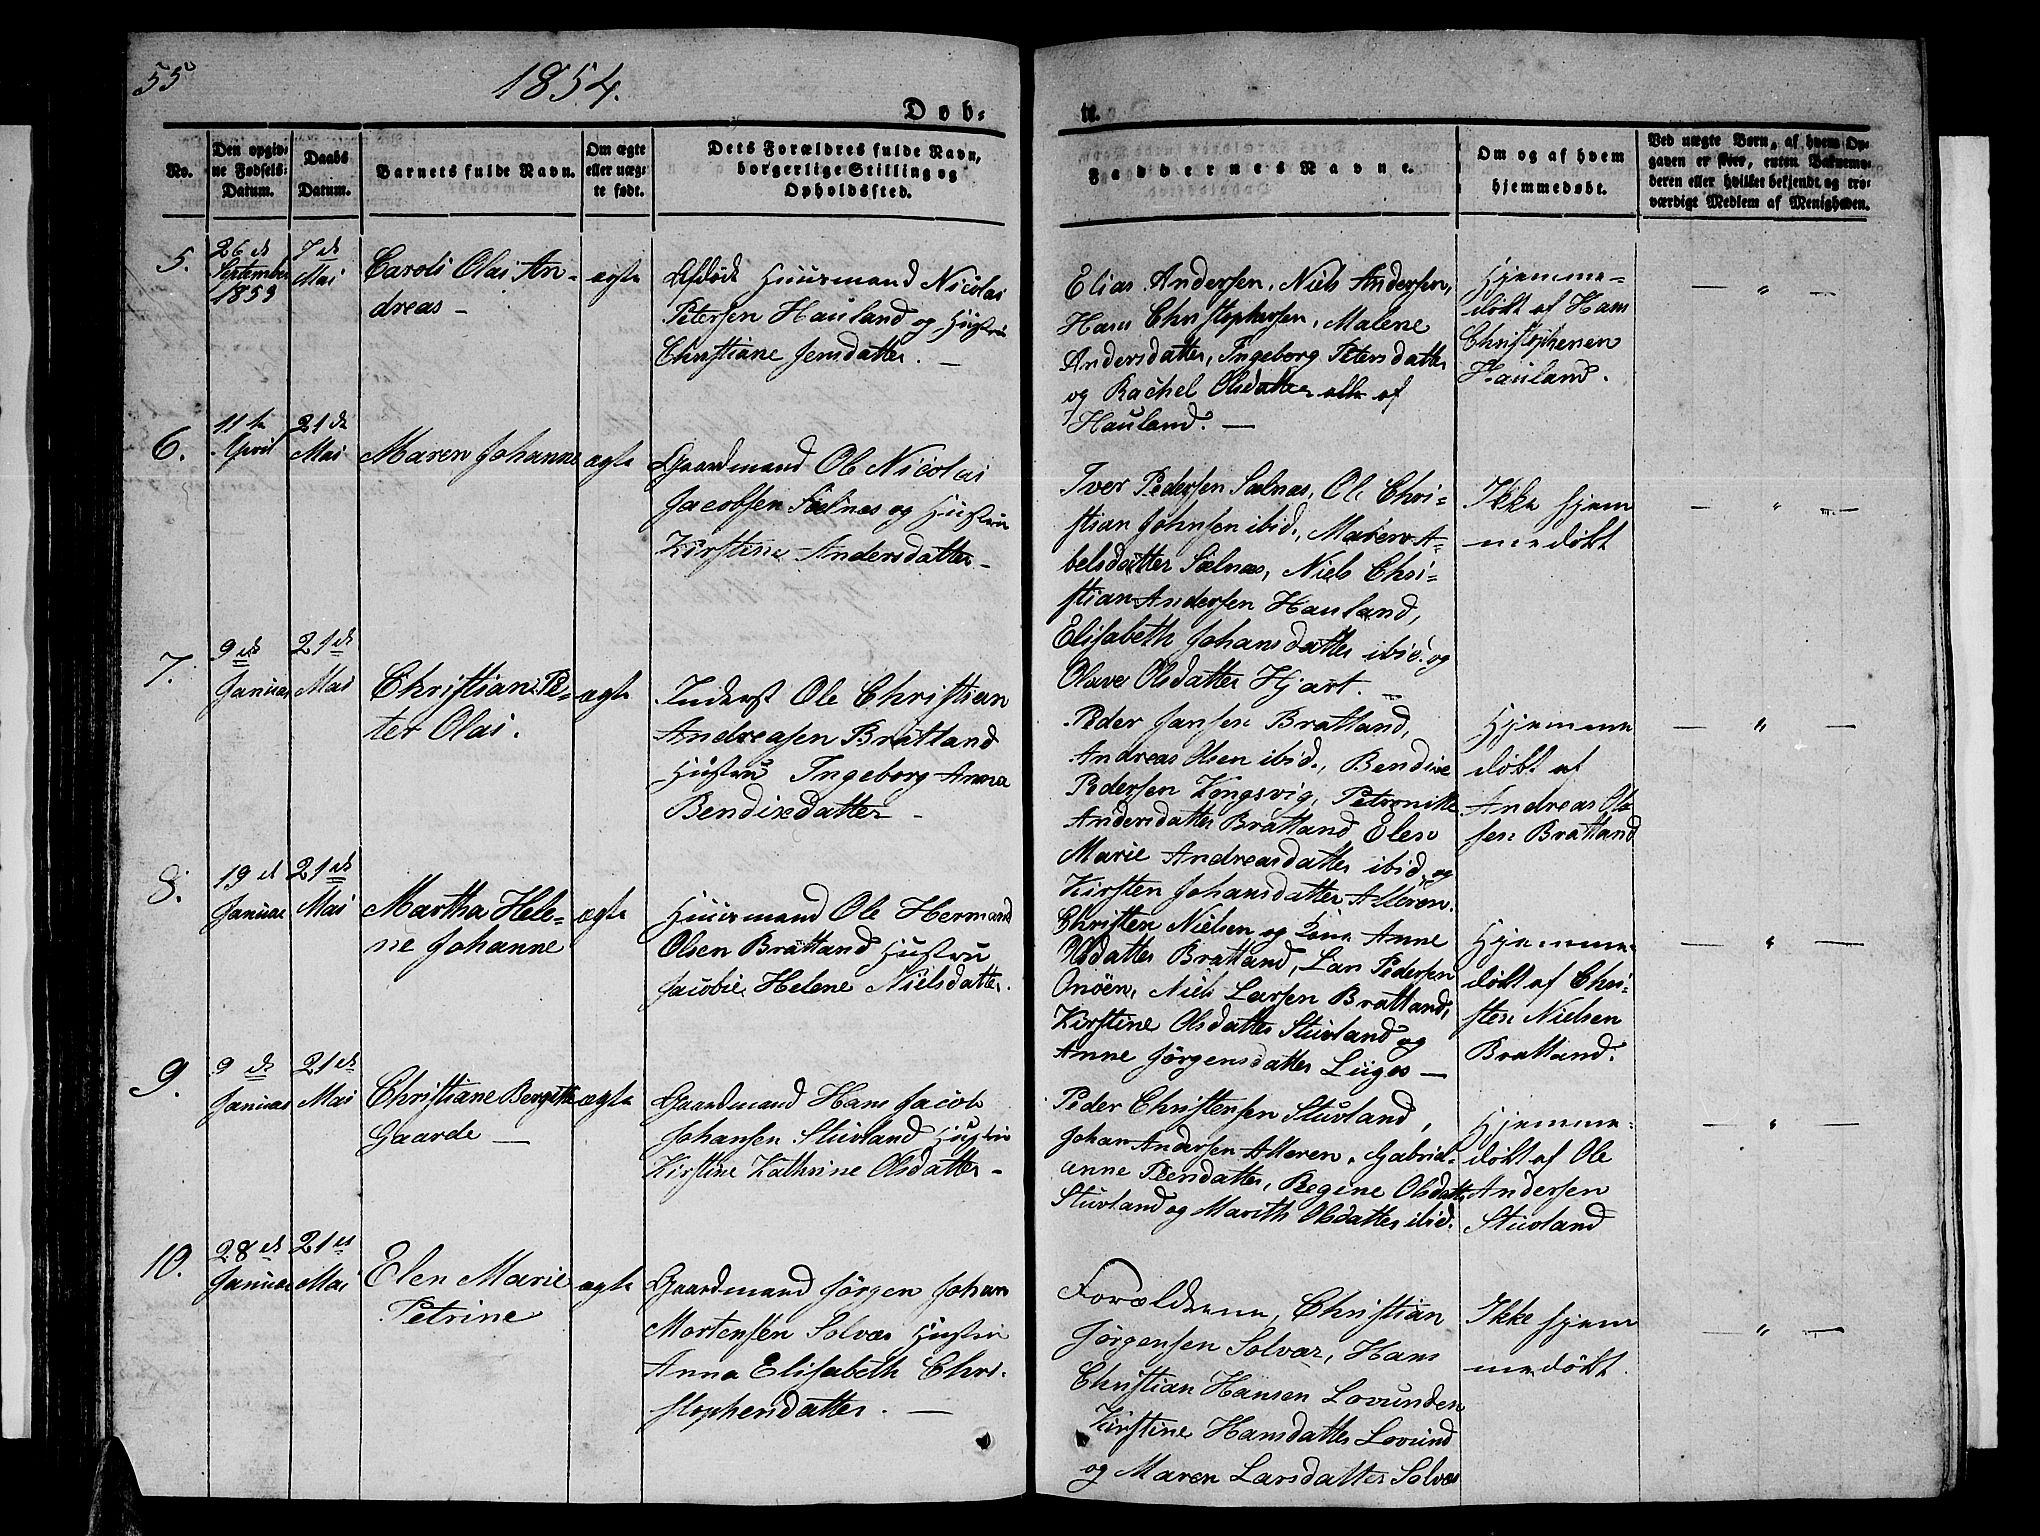 55
1854.
Døb-
te.
No.
Den opgiv-
ne Fødsels-
Datum.
Daabs
Datum.
Barnets fulde Navn.
Om ægte
eller uæg-
te født.
Dets Forældres fulde Navn,
borgerlige Stilling og
Opholdssted.
Faddernes Navne.
Om og af hvem
hjemmedøbt.
Ved uægte Born, af hvem Op-
gaven er skeet, enten Bekvemo-
deren eller hvilket bekjendt og tro-
værdigt Medlem af Menigheden.
5.
26 de
September
1853
7de
Mai
Caroli Olai An-
dreas -
ægte
Afdøde Huusmand Nicolai
Petersen Hauland og Hustru
Christiane Jensdatter. -
Elias Andersen, Niels Andersen,
Hans Christophersen, Malene
Andersdatter, Ingeborg Petersdatter
og Rachel Olsdatter alle af
Hauland. -
Hjemme-
døbt af Hans
Christophersen
Hauland.
- " -
6.
11te
April
21de
Mai
Maren Johanne
ægte
Gaardmand Ole Nicolai
Jacobsen Selnæs og Hustru
Kirstine Andersdatter -
Iver Pedersen Selnæs, Ole Chri-
stian Johnsen ibid., Maren A-
belsdatter Selnæs, Niels Chri-
stian Andersen Hauland,
Elisabeth Johansdatter ibid. og
Olave Olsdatter Hjart. -
Ikke hjem
medøbt
- " -
7.
9de
Januar
21de
Mai
Christian Pe-
ter Olai.
ægte
Inderst Ole Christian
Andreasen Bratland
Hustru Ingeborg Anna
Bendixdatter -
Peder Jansen Bratland,
Andreas Olsen ibid., Bendix
Pedersen Kongsvig, Petronille
Andersdatter Bratland Elen
Marie Andreasdatter ibid. og
Kirsten Johansdatter Alteren.
Hjemme
døbt af
Andreas Ol-
sen Bratland
- " -
8.
19de
Januar
21de
Mai
Martha Hele-
ne Johanne
ægte
Huusmand Ole Hermand
Olsen Bratland Hustru
Jacobie Helene Nielsdatter.
Christen Nielsen og Kone Anne
Olsdatter Bratland, Lars Pedersen
Onøen, Niels Larsen Bratland,
Kirstine Olsdatter Stuvland og
Anne Jørgensdatter -
Hjemme-
døbt af Chri-
sten Nielsen
Bratland.
- " -
9.
9de
Januar
21de
Mai
Christiane Bergitte
Gaarde -
ægte
Gaardmand Hans Jacob
Johansen Stuvland Hustru
Kirstine Kathrine Olsdatter -
Peder Christensen Stuvland,
Johan Andersen Alteren, Gabriel-
anne Peersdatter, Regine Olsdatter
Stuvland og Marith Olsdatter ibid.
Hjemme-
døbt af Ole
Andersen
Stuvland
- " -
10.
28de
Januar
21de
Mai
Elen Marie
Petrine
ægte
Gaardmand Jørgen Johan
Mortensen Solvær Hustru
Anna Elisabeth Chri-
stophersdatter. -
Forældrene, Christian
Jørgensen Solvær, Hans
Christian Hansen Lovunden
Kirstine Hansdatter Lovund
og Maren Larsdatter Solvær
Ikke hjem
medøbt.
- " -